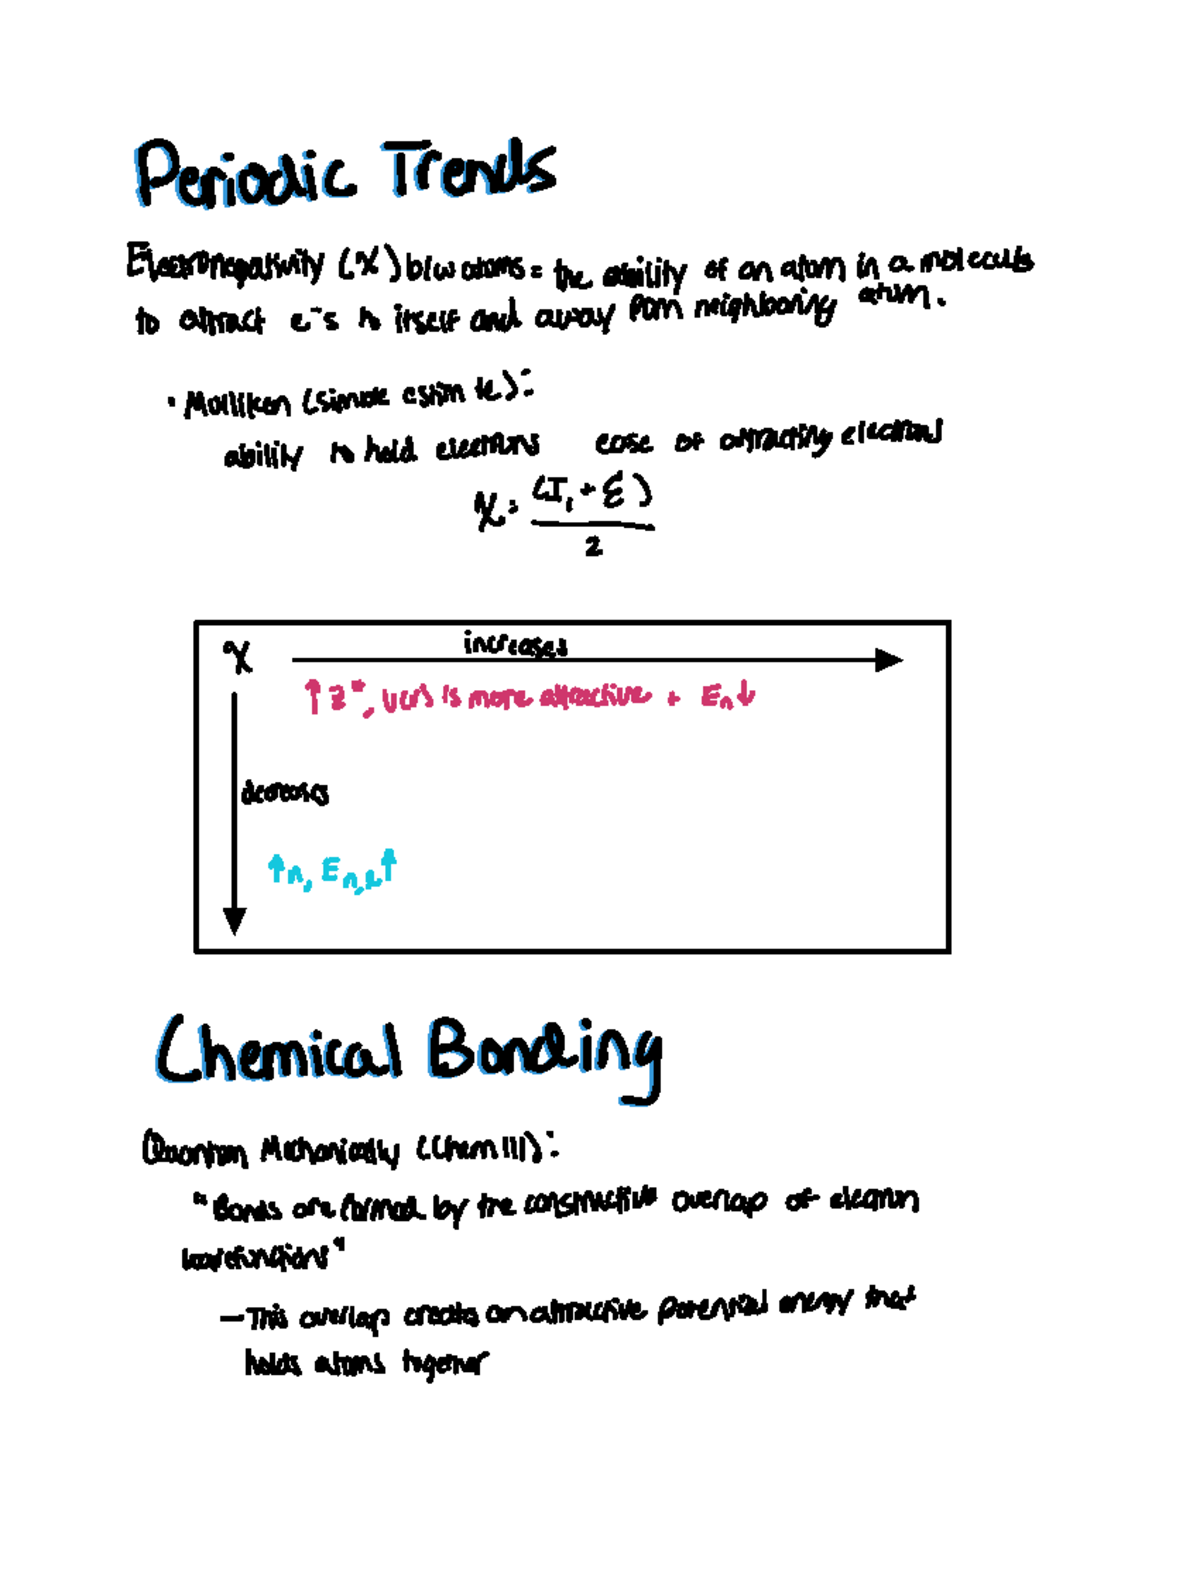 Periodic Trends
Electronegativity (χ) b/w atoms = the ability of an atom in a molecule
to attract e⁻s to itself and away from neighboring atom.
• Mulliken (simple estimate):
ability to hold electrons ease of attracting electrons
χ = (I₁ + ℰ)
2
χ increases
↑ Z*, V(r) is more attractive + Eₙ↓
decreases
↑n, Eₙ,ₗ↑
Chemical Bonding
Quantum Mechanically (Chem 111):
"Bonds are formed by the constructive overlap of electron
wavefunctions"
— This overlap creates an attractive potential energy that
holds atoms together